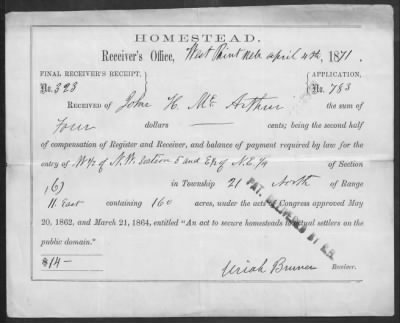 HOMESTEAD.
Receiver's Office, West Point Neb April 4th, 1871.
FINAL RECEIVER'S RECEIPT, } { APPLICATION,
No. 323 No. 783
RECEIVED of John H. Mc Arthur the sum of
Four dollars — cents; being the second half
of compensation of Register and Receiver, and balance of payment required by law for the
entry of W½ of N.W. Section 5 and E½ of N.E.¼ of Section
(6) in Township 21 North of Range
11 East containing 160 acres, under the acts of Congress approved May
20, 1862, and March 21, 1864, entitled "An act to secure homesteads to actual settlers on the
public domain."
PAT. DELIVERED BY R.R.
$4—
Uriah Bruner Receiver.